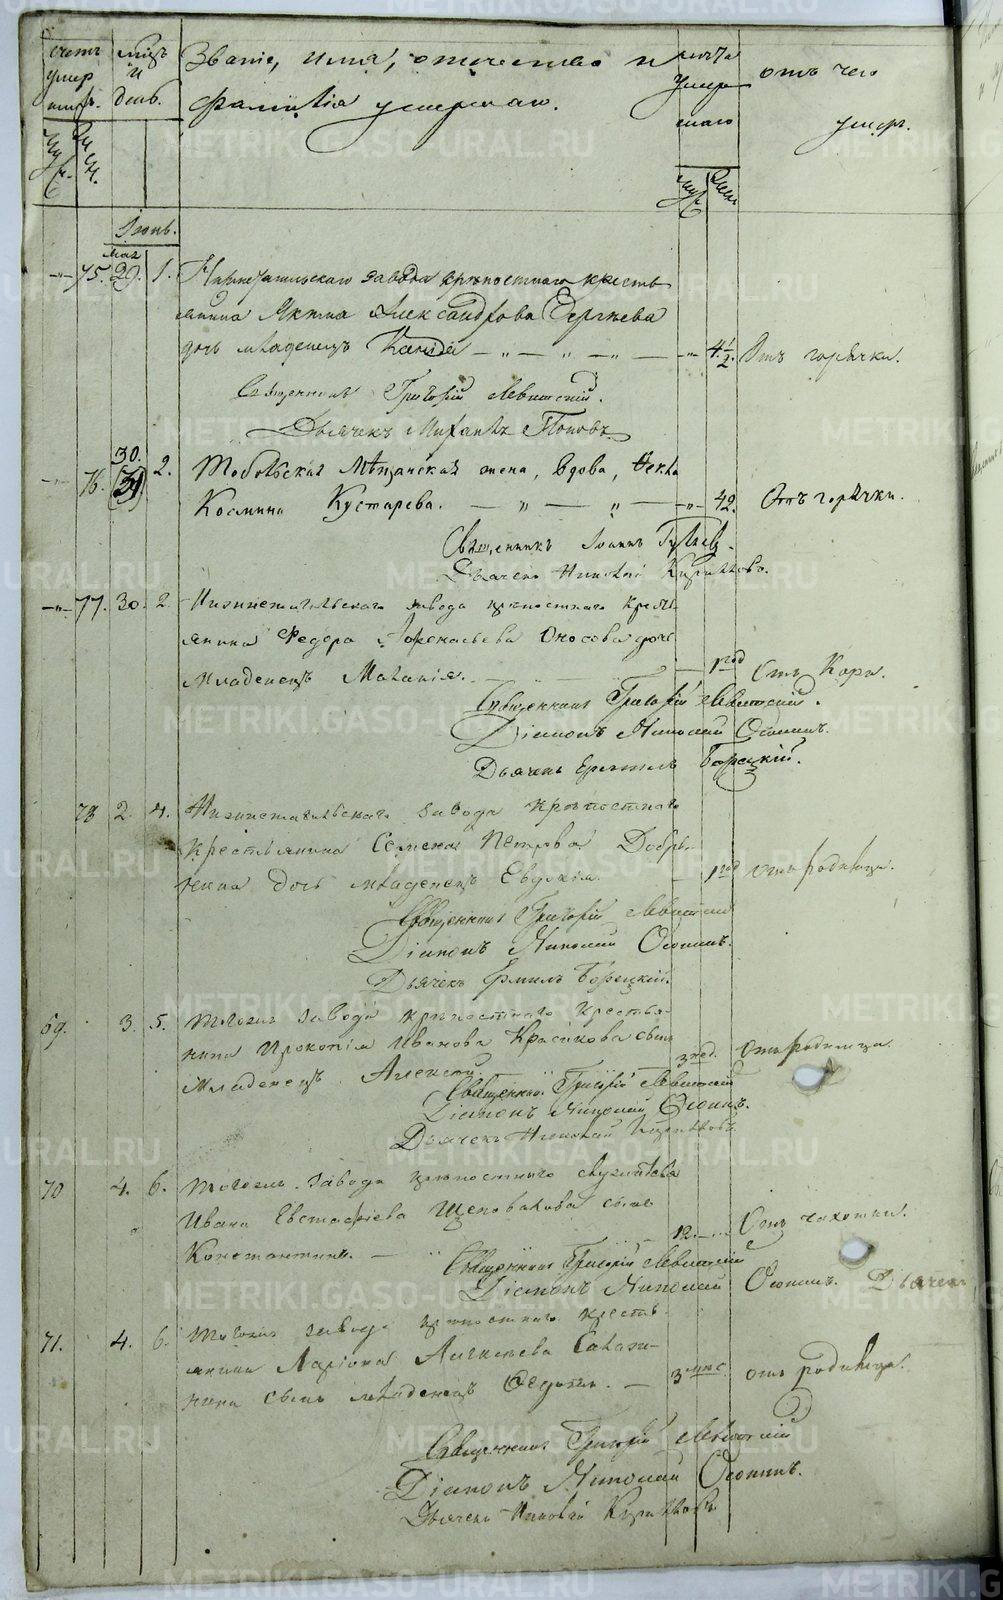 счетъ умер шихъ.
мѣсяцъ и день.
Званіе, имя, отечество и
фамилія умершаго.
лѣта умер шаго
отъ чего
умеръ.
Іюнь.
мая
75. 29. 1. Нижнетагильскаго завода крѣпостнаго кресть
янина Якима Александрова Сергѣева
дочь младенецъ 4 1/2. Отъ горячки.
Священникъ Григорій Левитскій.
Дьячекъ Михаилъ Поповъ
30.
76. (31) 2. Тобольская Мѣщанская жена, вдова, Ѳекла
Космина Кустарева. 42. Отъ горячки.
Священникъ Іоаннъ
Дьячекъ Николай
77. 30. 2. Нижнетагильскаго завода крѣпостнаго кресть
янина Федора Аѳанасьева Оносова дочь
младенецъ Маланія. 1 год Отъ Кори.
Священникъ Григорій Левитскій.
Діаконъ Николай Осонинъ.
Дьячекъ Ермилъ Борецкій.
78 2. 4. Нижнетагильскаго завода крѣпостнаго
крестьянина Семена Петрова Добры-
нина дочь младенецъ Евдокія. 1 год отъ родимца.
Священникъ Григорій Левитскій
Діаконъ Николай Осонинъ.
Дьячекъ Ермилъ Борецкій.
69. 3. 5. Тогожъ завода крѣпостнаго Крестья-
нина Прокопія Иванова Красикова сынъ
Младенецъ Алексей. 3 нед. Отъ родимца.
Священникъ Григорій Левитскій
Діаконъ Николай Осонинъ.
Дьячекъ Николай
70 4. 6. Тогожъ завода крѣпостнаго служителя
Ивана Евстафіева сынъ
Константинъ. 12. Отъ чахотки.
Священникъ Григорій Левитскій
Діаконъ Николай Осонинъ. Дьячекъ
71. 4. 6. Тогожъ завода крѣпостнаго кресть
янина Ларіона Алексѣева
нина сынъ младенецъ Ѳедотъ. 3 мѣс. отъ родимца.
Священникъ Григорій Левитскій
Діаконъ Николай Осонинъ.
Дьячекъ Николай
METRIKI.GASO-URAL.RU